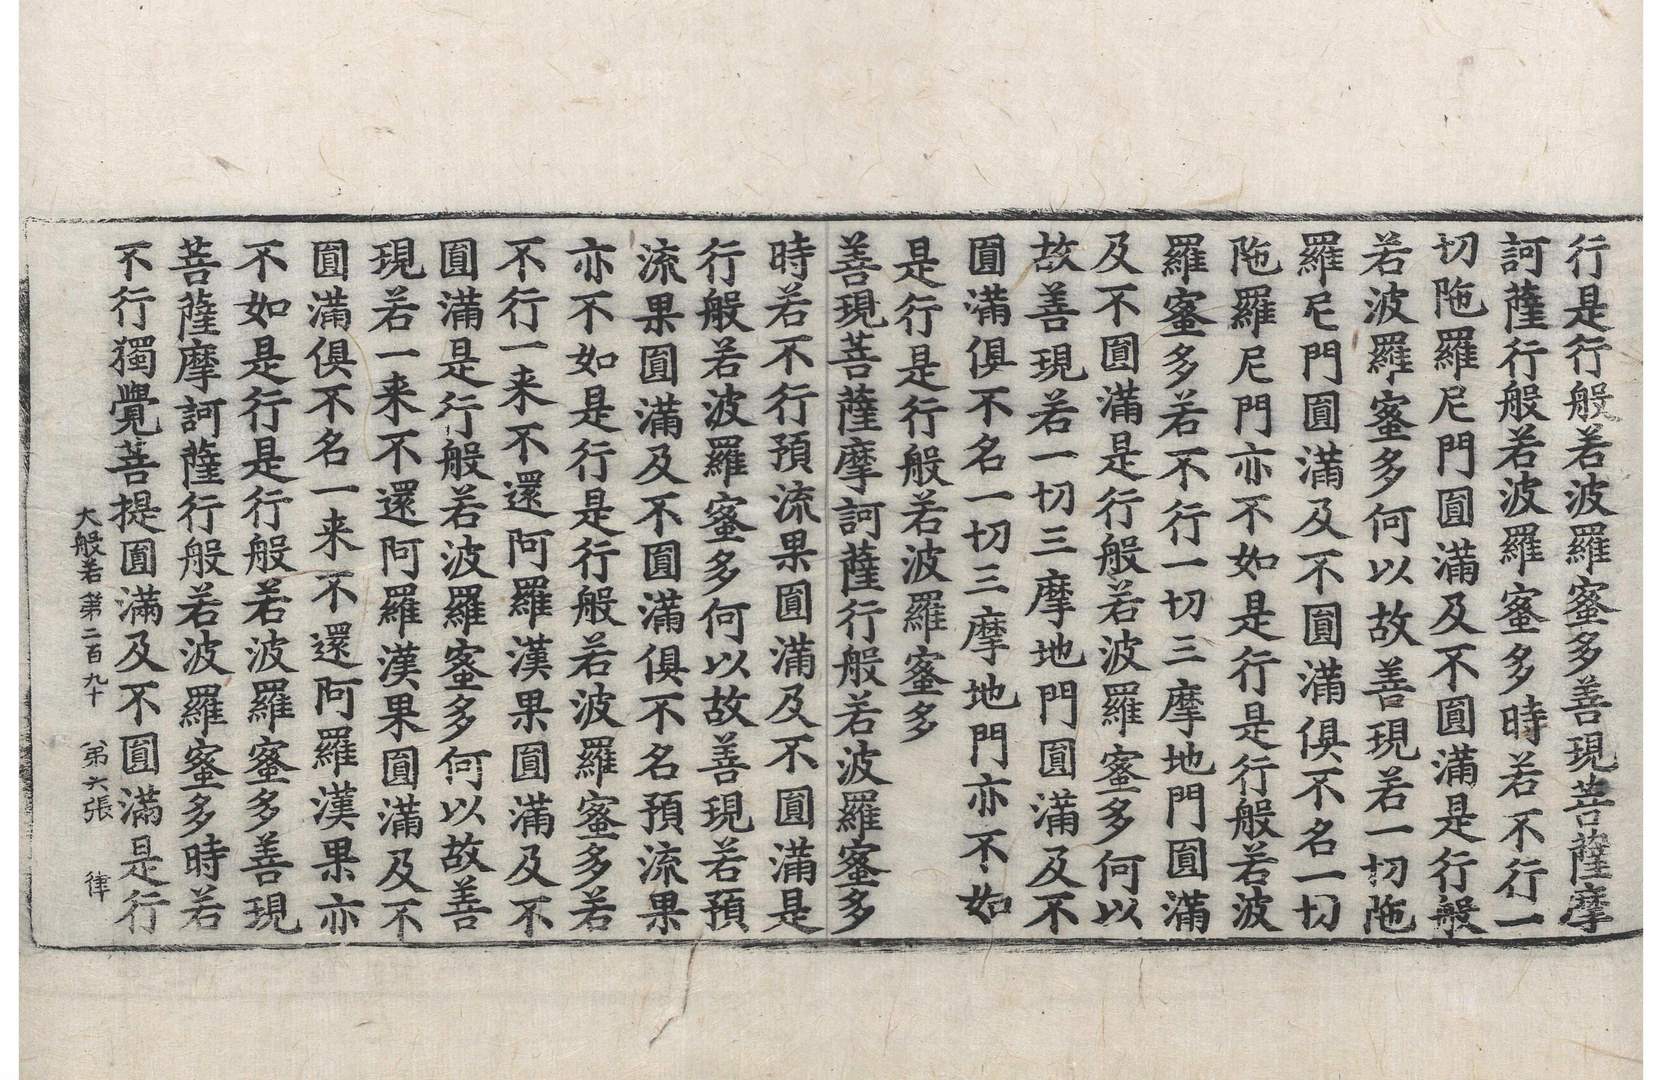 行是行般若波羅蜜多善現菩薩摩
訶薩行般若波羅蜜多時若不行一
切陁羅尼門圎滿及不圎滿是行般
若波羅蜜多何以故善現若一切陁
羅尼門圎滿及不圎滿俱不名一切
陁羅尼門亦不如是行是行般若波
羅蜜多若不行一切三摩地門圎滿
及不圎滿是行般若波羅蜜多何以
故善現若一切三摩地門圎滿及不
圎滿俱不名一切三摩地門亦不如
是行是行般若波羅蜜多
善現菩薩摩訶薩行般若波羅蜜多
時若不行預流果圎滿及不圎滿是
行般若波羅蜜多何以故善現若預
流果圎滿及不圎滿俱不名預流果
亦不如是行是行般若波羅蜜多若
不行一来不還阿羅漢果圎滿及不
圎滿是行般若波羅蜜多何以故善
現若一来不還阿羅漢果圎滿及不
圎滿俱不名一来不還阿羅漢果亦
不如是行是行般若波羅蜜多善現
菩薩摩訶薩行般若波羅蜜多時若
不行獨覺菩提圎滿及不圎滿是行
大般若第二百九十 第六張 律